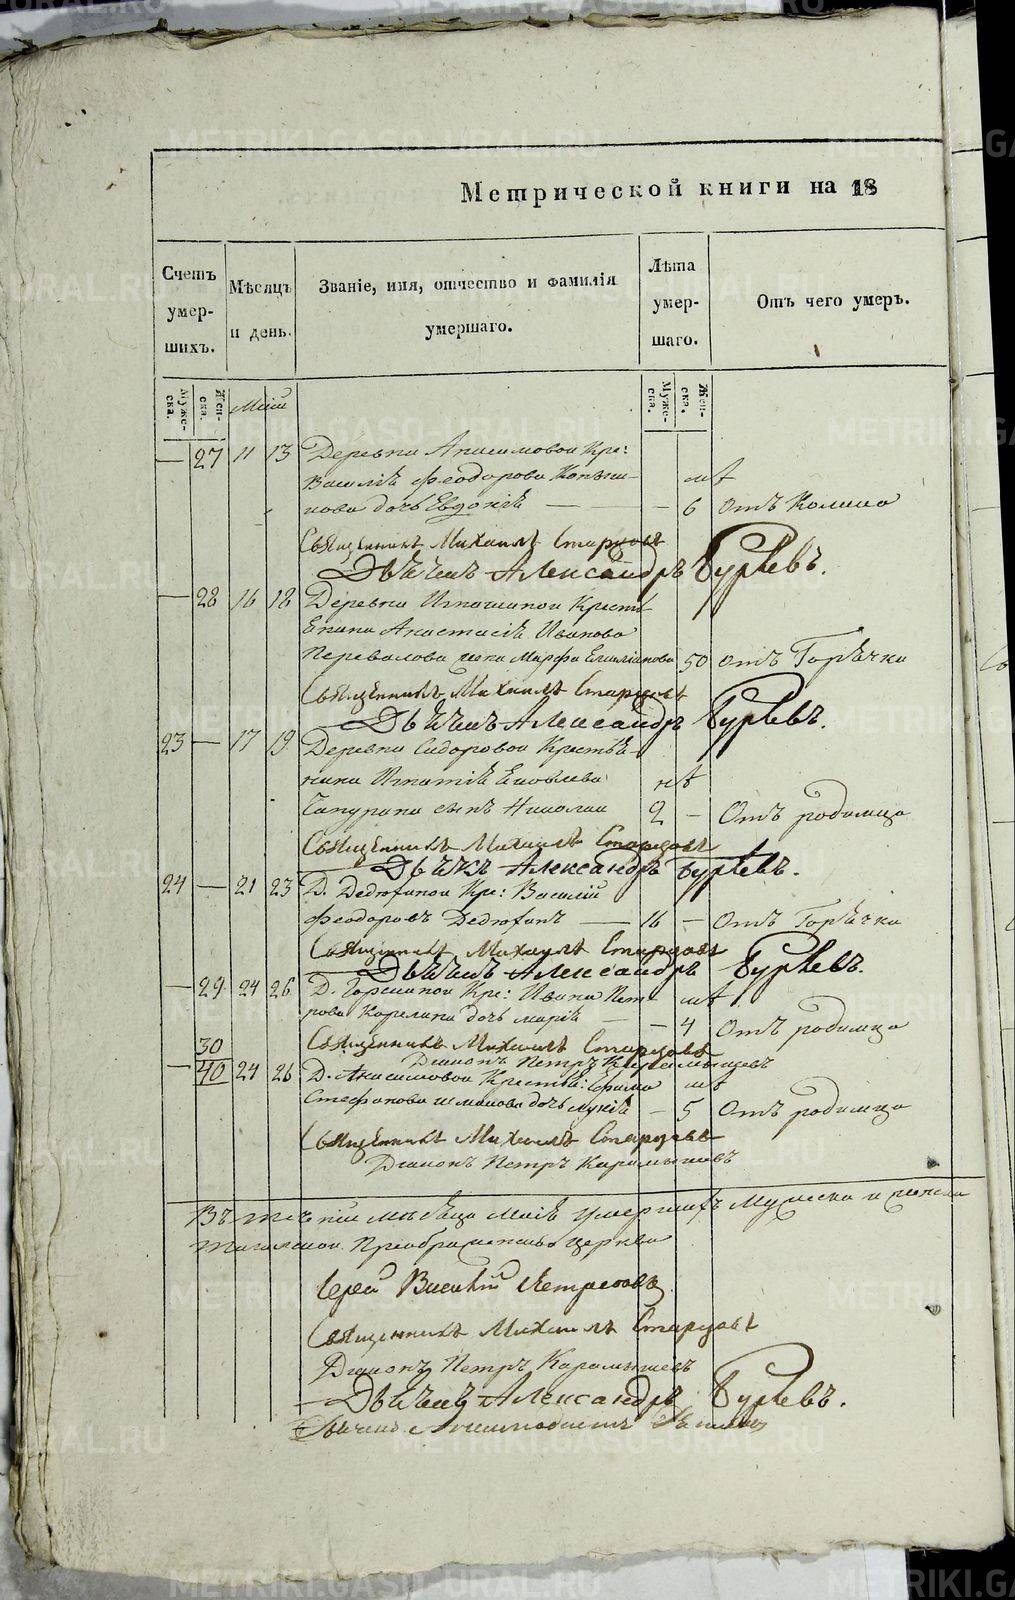 Метрической книги на 18
Счетъ умер- шихъ.
Мѣсяцъ и день.
Званіе, имя, отчество и фамилія умершаго.
Лѣта умер- шаго.
Отъ чего умеръ.
Муже- ска.
Жен- ска.
Маій
Муже- ска.
Жен- ска.
— 27 11 13 Деревни Анисимовой Кре:
Василія Феодорова
нова дочь Евдокія — — 6 отъ
Священникъ Михаилъ Старцовъ
Дьячекъ Александръ Гурьевъ.
— 28 16 18 Деревни Игнашиной Кресть
Анастасія Иванова
Перевалова жена Марфа Емиліанова 50 отъ Горячки
Священникъ Михаилъ Старцовъ
Дьячекъ Александръ Гурьевъ.
23 — 17 19 Деревни Сидоровой Крестья-
нина Игнатія Яковлева
Чапурина сынъ Николай 2 — Отъ родимца
Священникъ Михаилъ Старцовъ
Дьячекъ Александръ Гурьевъ.
24 — 21 23 Д. Дедюхиной Кре: Василій
Феодоровъ Дедюхинъ — 16 — Отъ Горячки
Священникъ Михаилъ Старцовъ
Дьячекъ Александръ Гурьевъ.
— 29 24 26 Д. Кре: Ивана Пет-
рова Карелина дочь Марія — — 4 Отъ родимца
Священникъ Михаилъ Старцовъ
Діаконъ Петръ Карамышевъ
30
— 40 24 26 Д. Анисимовой Крестья: Ефима
Стефанова дочь — 5 Отъ родимца
Священникъ Михаилъ Старцовъ
Діаконъ Петръ Карамышевъ
Въ теченіи мѣсяца Маія умершихъ Мужеска и женска
Преображенской церкви
Іерей Василій
Священникъ Михаилъ Старцовъ
Діаконъ Петръ Карамышевъ
Дьячекъ Александръ Гурьевъ.
METRIKI.GASO-URAL.RU